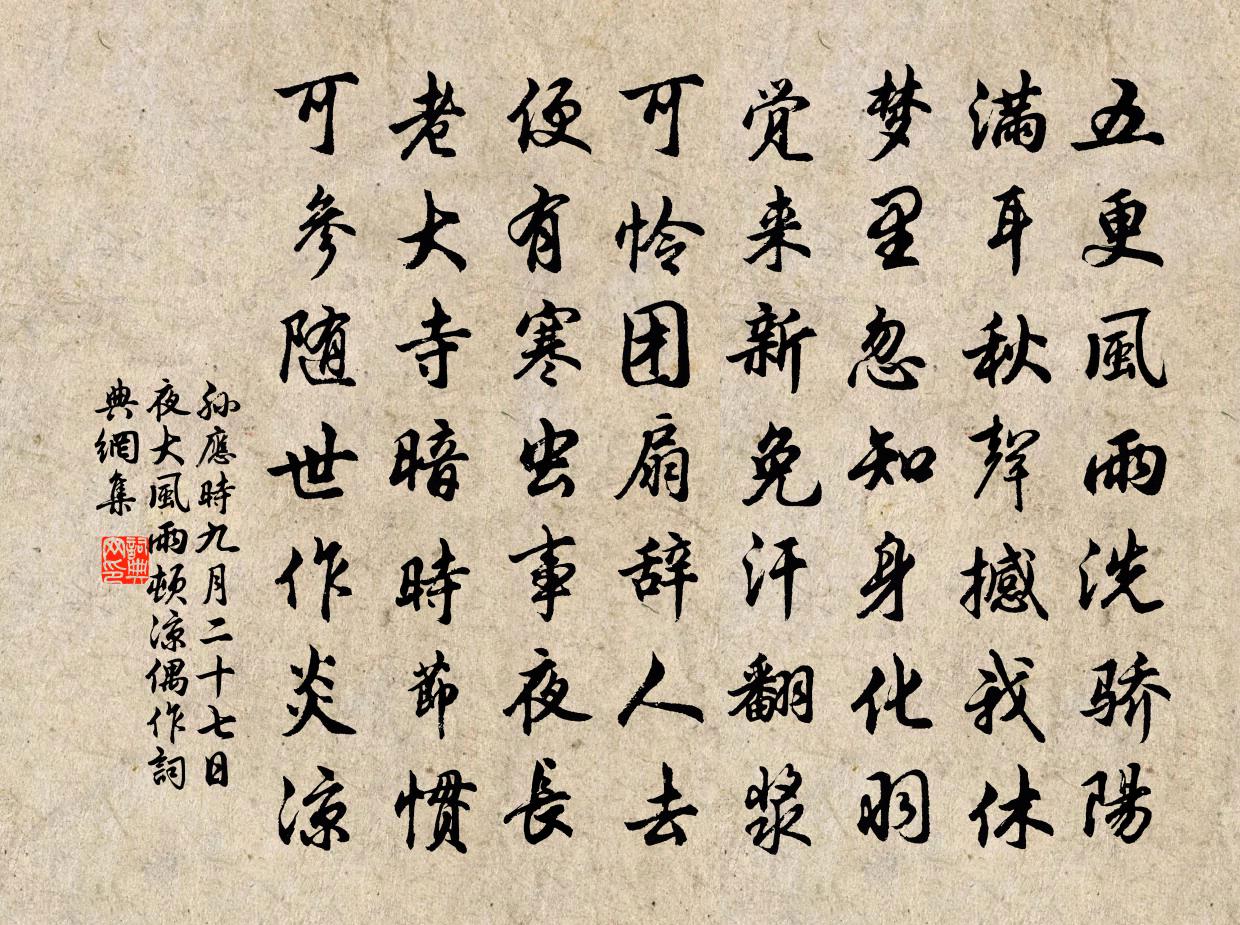 五更風雨洗骄陽
满耳秋聲撼我休
梦里忽知身化羽
觉来新免汗翻浆
可怜团扇辞人去
便有寒虫事夜長
老大寺暗時節惯
可參随世作炎凉
孙應時九月二十七日
夜大風雨頓凉偶作詞
典網集
詞典
网印